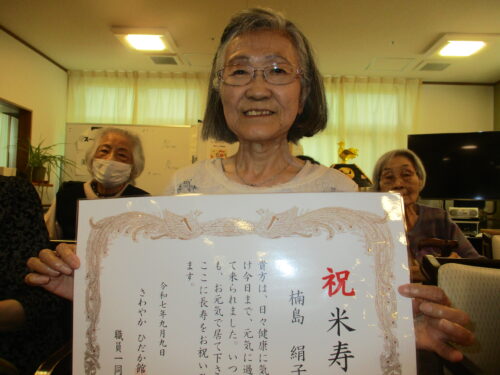 祝 米寿
楠島 絹子
貴方は、日々健康に気
け今日まで、元気に過
て来られました。いつ
も、お元気で居て下さ
ここに長寿をお祝い
ます。
令和七年九月九日
さわやか ひだか館
職員一同